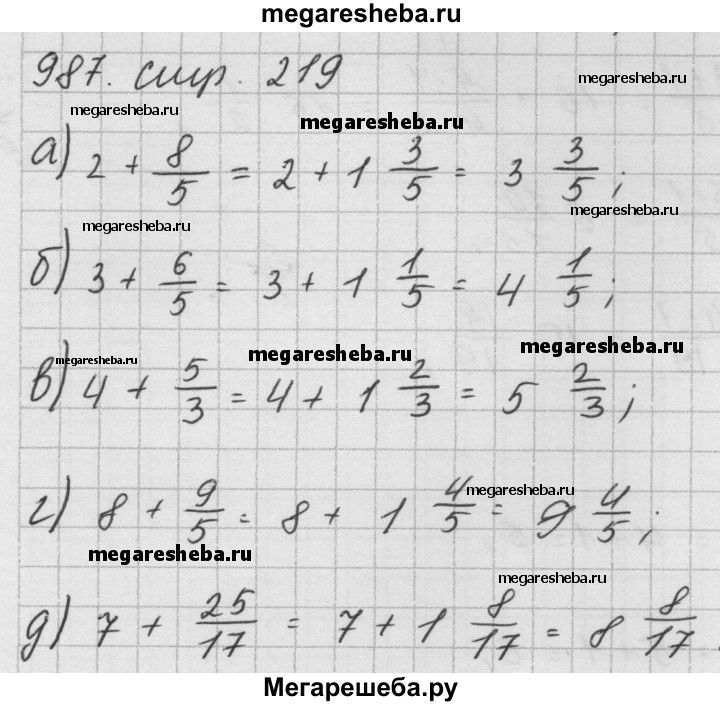 megaresheba.ru
987. стр. 219
megaresheba.ru
megaresheba.ru
megaresheba.ru
а) 2 + 8/5 = 2 + 1 3/5 = 3 3/5;
megaresheba.ru
megaresheba.ru
б) 3 + 6/5 = 3 + 1 1/5 = 4 1/5;
megaresheba.ru
megaresheba.ru
megaresheba.ru
в) 4 + 5/3 = 4 + 1 2/3 = 5 2/3;
megaresheba.ru
г) 8 + 9/5 = 8 + 1 4/5 = 9 4/5;
megaresheba.ru
megaresheba.ru
д) 7 + 25/17 = 7 + 1 8/17 = 8 8/17.
Мегарешеба.ру